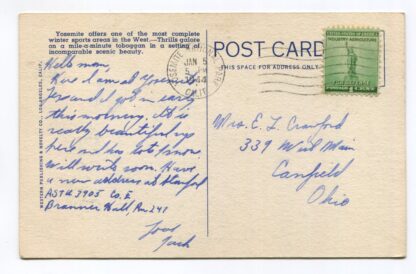 Yosemite offers one of the most complete
winter sports areas in the West.—Thrills galore
on a mile-a-minute toboggan in a setting of
incomparable scenic beauty.
Hello mom,
Here I am at Yosemite
and I got in early
this morning. It is
really beautiful up
here and has lots snow
Will write soon. Have
a new address at Stanford
ASTU 3905 Co. E.
Branner Hall, Rm 241
Love
Jack
WESTERN PUBLISHING & NOVELTY CO., LOS ANGELES, CALIF.
POST CARD
THIS SPACE FOR ADDRESS ONLY
YOSEMITE
JAN 5
PM
1944
CALIF.
UNITED STATES OF AMERICA
INDUSTRY AGRICULTURE
FOR DEFENSE
Mrs. E. L. Crawford
339 West Main
Canfield
Ohio